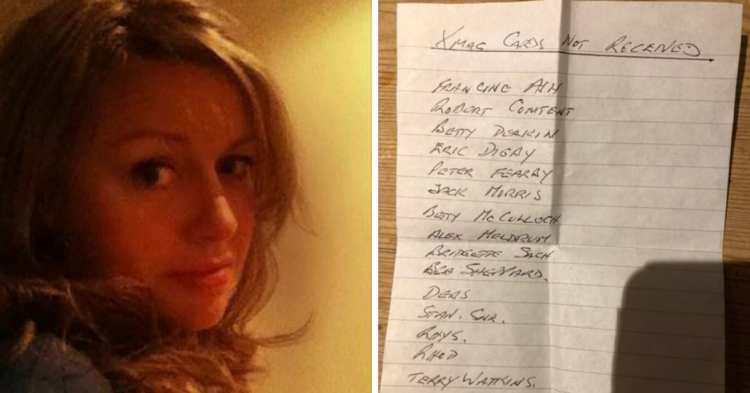 XMAS CARDS NOT RECEIVED
FRANCINE ASH
ROBERT COMTENT
BETTY DEAKIN
ERIC DIGBY
PETER FEARBY
JACK MORRIS
BETTY MCCULLOCH
ALEX MELDRUM
BRIDGETTE SACH
BEA SHEPPARD.
DEBS
STAN. SNR.
RHYS.
RHOD
TERRY WATKINS.